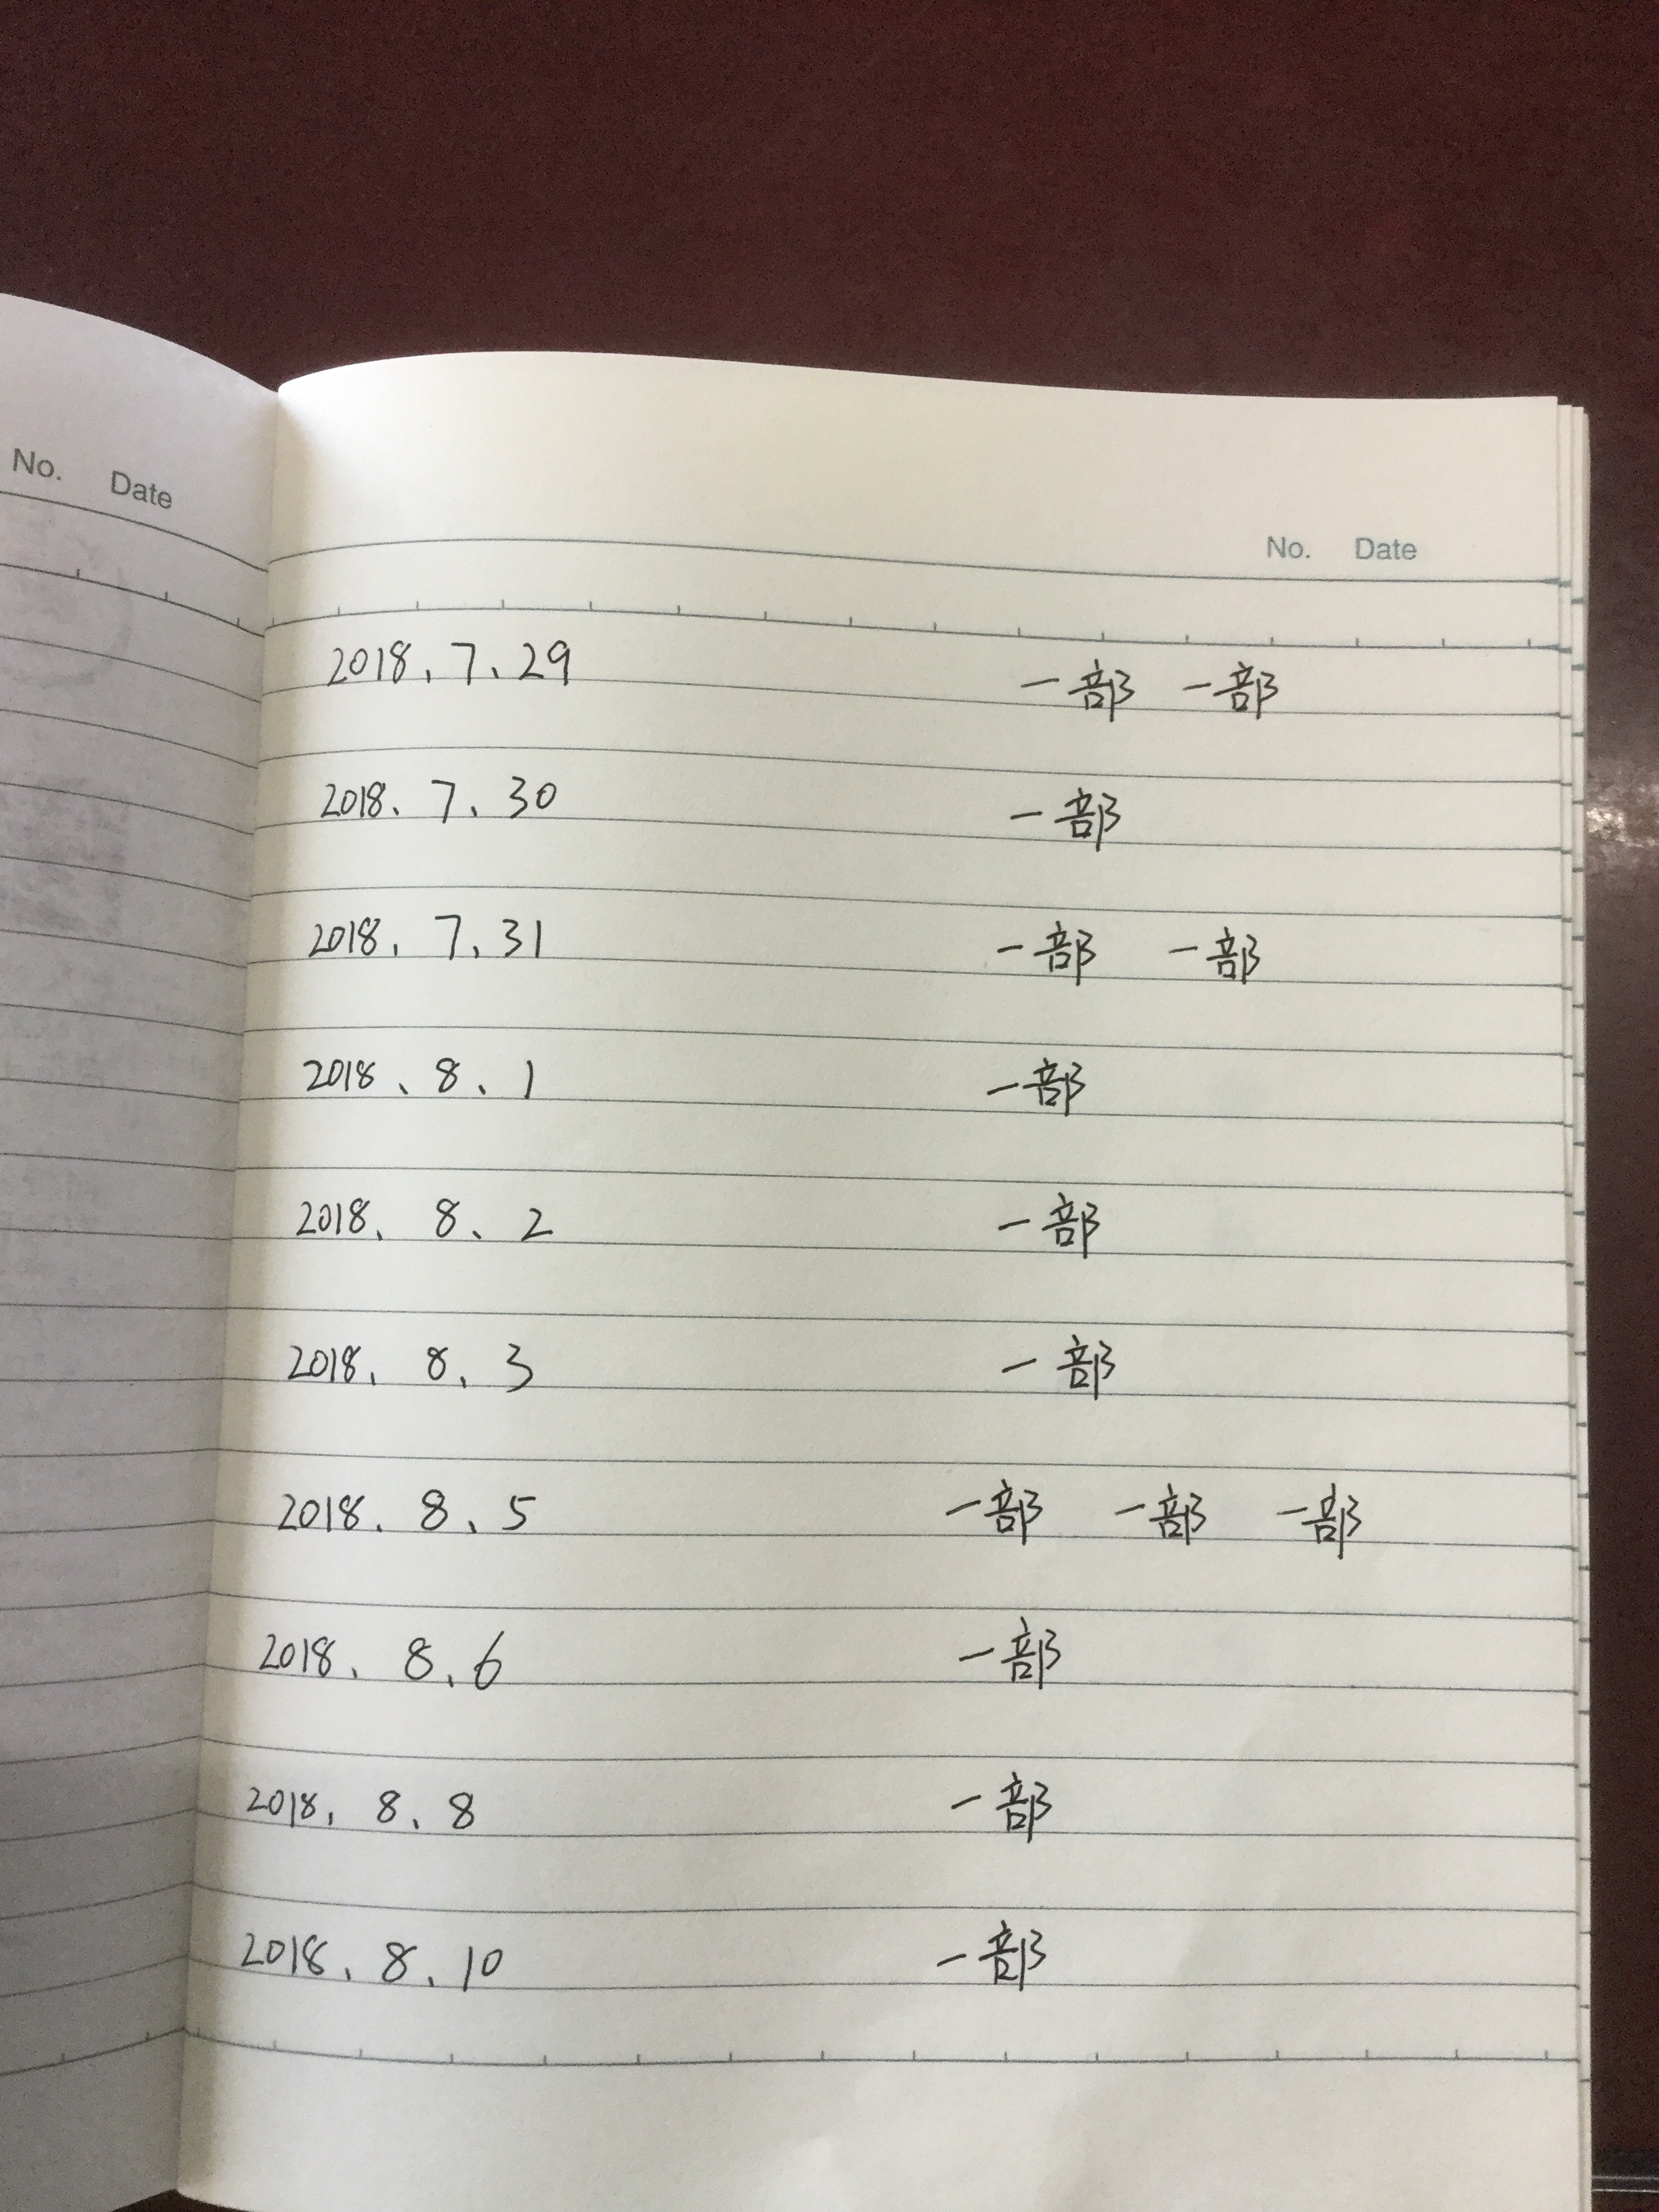 No. Date
No. Date
2018、7、29 一部 一部
2018、7、30 一部
2018、7、31 一部 一部
2018、8、1 一部
2018、8、2 一部
2018、8、3 一部
2018、8、5 一部 一部 一部
2018、8、6 一部
2018、8、8 一部
2018、8、10 一部